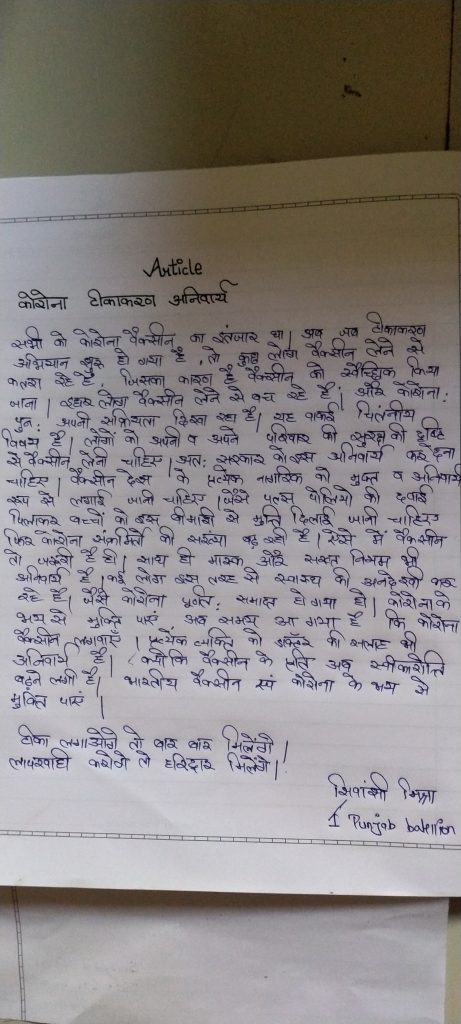 Article
कोरोना टीकाकरण अनिवार्य
सभी को कोरोना वैक्सीन का इंतजार था। अब जब टीकाकरण
अभियान शुरू हो गया है, तो कुछ लोग वैक्सीन लेने से
कतरा रहे है, जिसका कारण है वैक्सीन को स्वैच्छिक किया
जाना। इधर लोग वैक्सीन लेने से बच रहे है; और कोरोना:
पुन: अपनी सक्रियता दिखा रहा है। यह वाकई चिंतनीय
विषय है। लोगों को अपनी व अपने परिवार की सुरक्षा की दृष्टि
से वैक्सीन लेनी चाहिए। अत: सरकार को इसे अनिवार्य कर देना
चाहिए। वैक्सीन देश के प्रत्येक नागरिक को मुफ्त व अनिवार्य
रूप से लगाई जानी चाहिए। जैसे पल्स पोलियो की दवाई
पिलाकर बच्चों को इस बीमारी से मुक्ति दिलाई जानी चाहिए
फिर कोरोना संक्रमितों की संख्या बढ़ रही है। ऐसे में वैक्सीन
तो जरूरी है ही। साथ ही मास्क और सख्त नियम भी
अनिवार्य है। कई लोग इस तरह से स्वास्थ्य की अनदेखी कर
रहे है। जैसे कोरोना पूर्णत: समाप्त हो गया हो। कोरोना के
भय से मुक्ति पाएं अब समय आ गया है कि कोरोना
वैक्सीन लगवाएँ। प्रत्येक व्यक्ति को डॉक्टर की सलाह भी
अनिवार्य है। क्योंकि वैक्सीन के प्रति अब
बढ़ने लगी है। भारतीय वैक्सीन कोरोना के भय से
मुक्ति पाएं।
टीका लगाओगे तो बार बार मिलेंगे।
लापरवाही करोगे तो हरिद्वार मिलेंगे।
शिवांशी मिश्रा
1 Punjab batellion